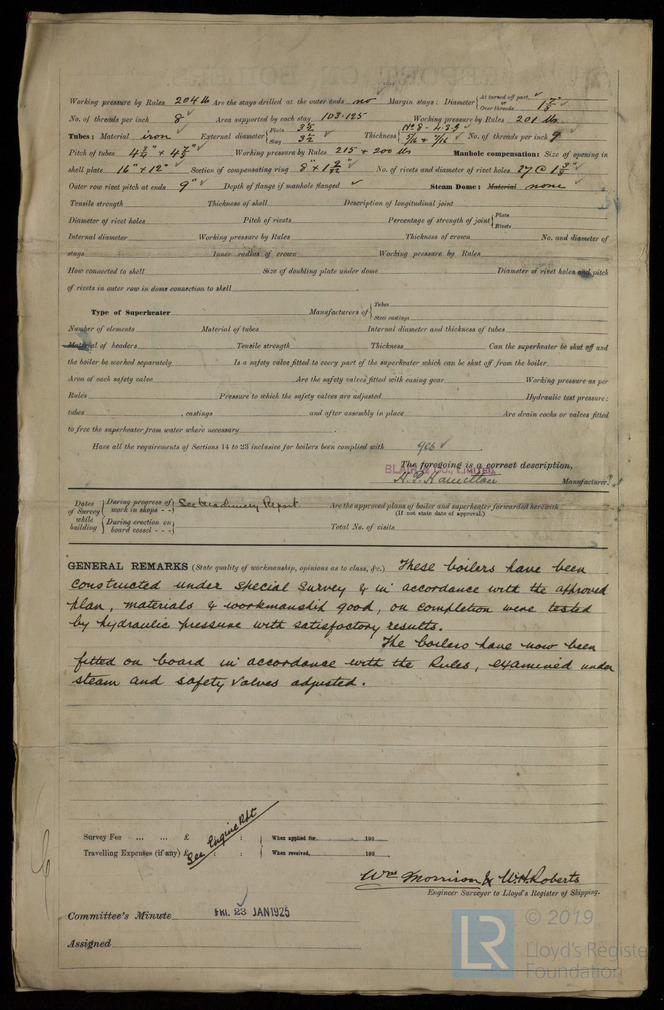 Working pressure by Rules 204 lb Are the stays drilled at the outer ends no Margin stays: Diameter { At turned off part, or Over threads 1 7/8"
No. of threads per inch 8 Area supported by each stay 103.125 Working pressure by Rules 201 lbs
Tubes: Material iron External diameter { Plain 3 1/2 Stay 3 1/2 Thickness { No 8 - 5/16 & 7/16 No. of threads per inch 9
Pitch of tubes 4 3/4" x 4 7/8" Working pressure by Rules 215 & 200 lbs Manhole compensation: Size of opening in
shell plate 16" x 12" Section of compensating ring No. of rivets and diameter of rivet holes
Outer row rivet pitch at ends 9" Depth of flange if manhole flanged Steam Dome: Material none
Tensile strength Thickness of shell Description of longitudinal joint
Diameter of rivet holes Pitch of rivets Percentage of strength of joint { Plate Rivets
Internal diameter Working pressure by Rules Thickness of crown No. and diameter of
stays Inner radius of crown Working pressure by Rules
How connected to shell Size of doubling plate under dome Diameter of rivet holes and pitch
of rivets in outer row in dome connection to shell
Type of Superheater Manufacturers of { Tubes Steel castings
Number of elements Material of tubes Internal diameter and thickness of tubes
Material of headers Tensile strength Thickness Can the superheater be shut off and
the boiler be worked separately Is a safety valve fitted to every part of the superheater which can be shut off from the boiler
Area of each safety valve Are the safety valves fitted with easing gear Working pressure as per
Rules Pressure to which the safety valves are adjusted Hydraulic test pressure:
tubes , castings and after assembly in place Are drain cocks or valves fitted
to free the superheater from water where necessary
Have all the requirements of Sections 14 to 23 inclusive for boilers been complied with yes
The foregoing is a correct description,
BLAIR & CO., LIMITED.
H. P. Hamilton Manufacturer.
Dates of Survey while building { During progress of work in shops - - } See Machinery Report Are the approved plans of boiler and superheater forwarded herewith
(If not state date of approval.)
{ During erection on board vessel - - - } Total No. of visits
GENERAL REMARKS (State quality of workmanship, opinions as to class, &c.) These boilers have been
constructed under special survey & in accordance with the approved
plan, materials & workmanship good, on completion were tested
by hydraulic pressure with satisfactory results.
The boilers have now been
fitted on board in accordance with the Rules, examined under
steam and safety valves adjusted.
Survey Fee ... ... £ : : } When applied for, 192
See Engine Rpt
Travelling Expenses (if any) £ : : } When received, 192
Wm Morrison & W.H. Roberts
Engineer Surveyor to Lloyd's Register of Shipping.
Committee's Minute FRI. 23 JAN 1925
Assigned
LR © 2019
Lloyd's Register
Foundation